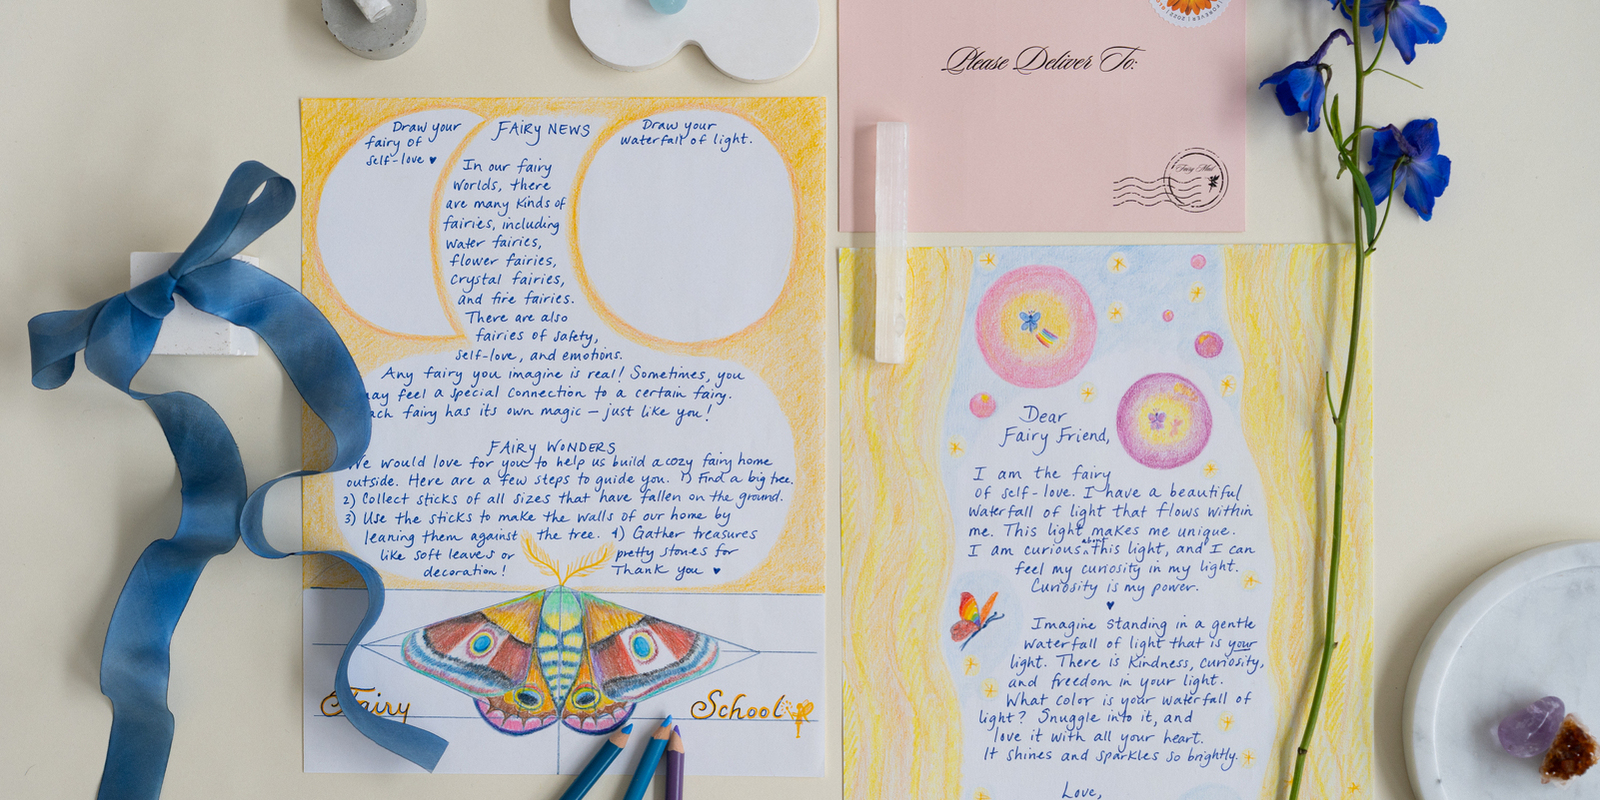 Draw your
fairy of
self-love ♥
FAIRY NEWS
Draw your
waterfall of light.
In our fairy
worlds, there
are many kinds of
fairies, including
water fairies,
flower fairies,
crystal fairies,
and fire fairies.
There are also
fairies of safety,
self-love, and emotions.
Any fairy you imagine is real! Sometimes, you
may feel a special connection to a certain fairy.
each fairy has its own magic – just like you!
FAIRY WONDERS
We would love for you to help us build a cozy fairy home
outside. Here are a few steps to guide you. 1) Find a big tree.
2) Collect sticks of all sizes that have fallen on the ground.
3) Use the sticks to make the walls of our home by
leaning them against the tree. 4) Gather treasures
like soft leaves or pretty stones for
decoration! Thank you ♥
Fairy School
Please Deliver To:
FOREVER
Fairy Mail
Dear
Fairy Friend,
I am the fairy
of self-love. I have a beautiful
waterfall of light that flows within
me. This light makes me unique.
I am curious about this light, and I can
feel my curiosity in my light.
Curiosity is my power.
♥
Imagine standing in a gentle
waterfall of light that is your
light. There is kindness, curiosity,
and freedom in your light.
What color is your waterfall of
light? Snuggle into it, and
love it with all your heart.
It shines and sparkles so brightly.
Love,